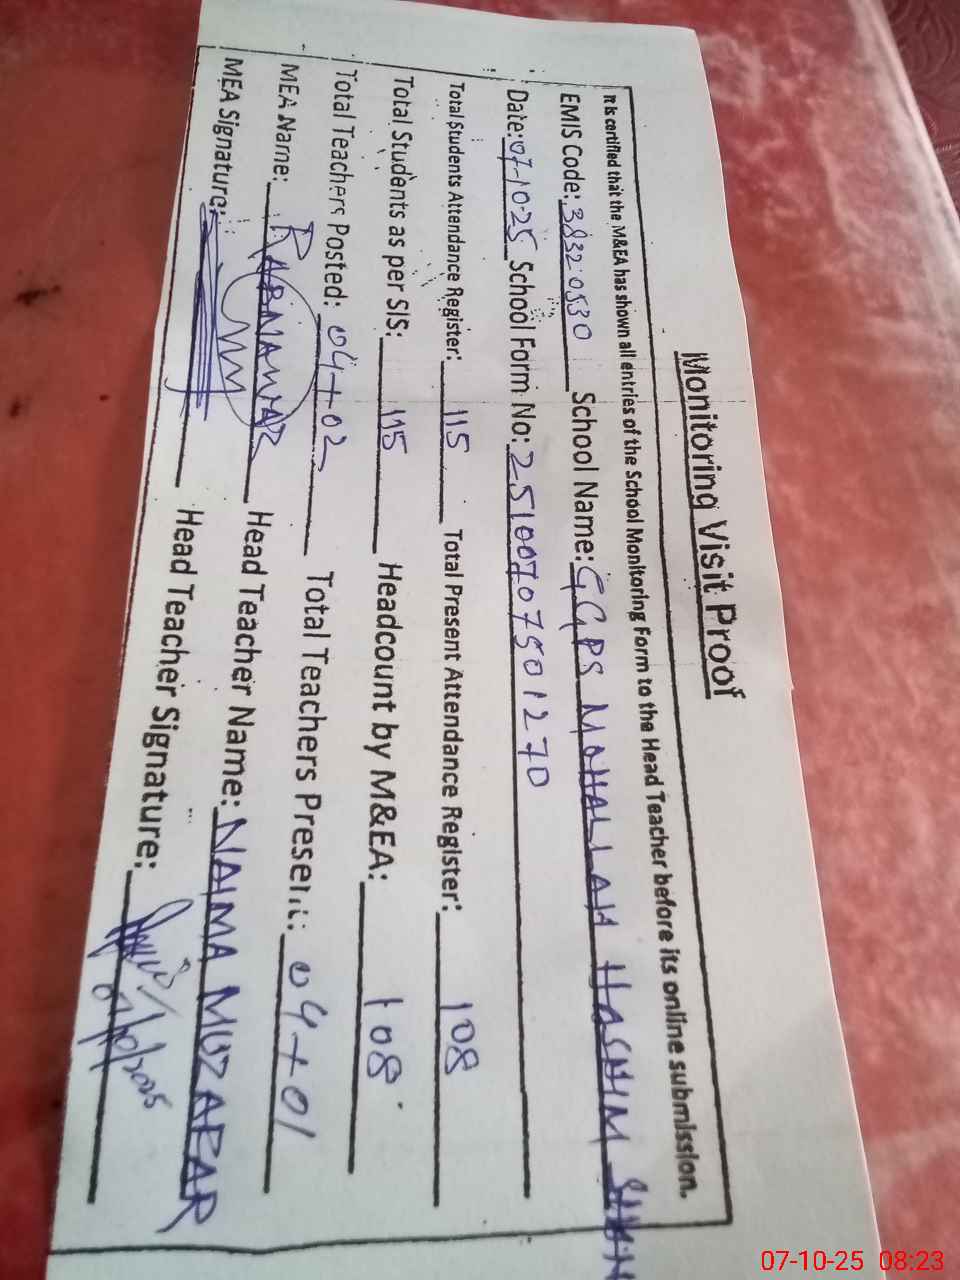 Monitoring Visit Proof
It is certified that the M&EA has shown all entries of the School Monitoring Form to the Head Teacher before its online submission.
EMIS Code: 38320530 School Name: GGPS MOHALLAH HASHIM SHAH
Date: 07-10-25 School Form No: 25100707501270
Total Students Attendance Register: 115 Total Present Attendance Register: 108
Total Students as per SIS: 115 Headcount by M&EA: 108
Total Teachers Posted: 04+02 Total Teachers Present: 04+01
MEA Name: Head Teacher Name: NAIMA MUZAFAR
MEA Signature: Head Teacher Signature:
07-10-25 08:23